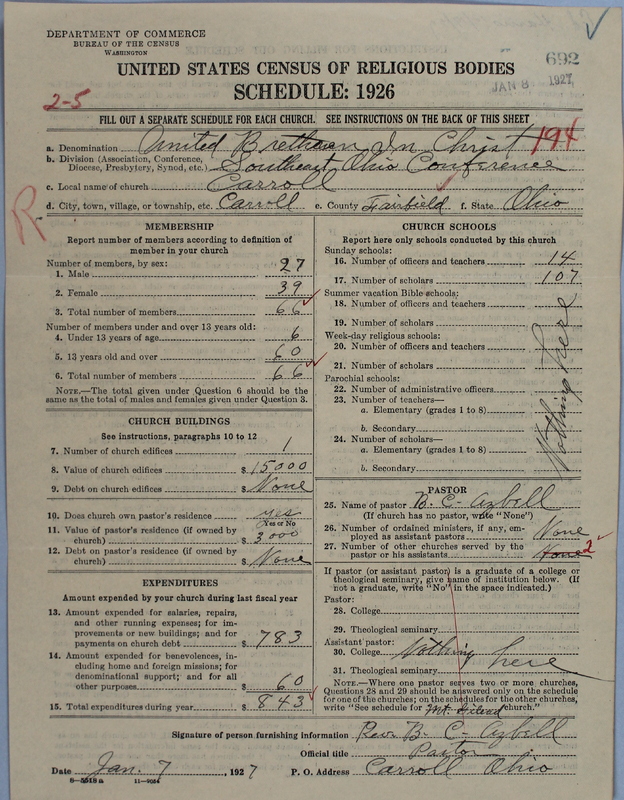 DEPARTMENT OF COMMERCE
BUREAU OF THE CENSUS
WASHINGTON
692
JAN 8 1927
UNITED STATES CENSUS OF RELIGIOUS BODIES
SCHEDULE: 1926
2-5
FILL OUT A SEPARATE SCHEDULE FOR EACH CHURCH. SEE INSTRUCTIONS ON THE BACK OF THIS SHEET
a. Denomination United Brethern In Christ 194
b. Division (Association, Conference, Diocese, Presbytery, Synod, etc.) Southeast Ohio Conference
c. Local name of church Carroll
d. City, town, village, or township, etc. Carroll e. County Fairfield f. State Ohio
R
MEMBERSHIP
Report number of members according to definition of
member in your church
Number of members, by sex:
1. Male 27
2. Female 39
3. Total number of members 66
Number of members under and over 13 years old:
4. Under 13 years of age 6
5. 13 years old and over 60
6. Total number of members 66
NOTE.—The total given under Question 6 should be the
same as the total of males and females given under Question 3.
CHURCH BUILDINGS
See instructions, paragraphs 10 to 12
7. Number of church edifices 1
8. Value of church edifices $ 15000
9. Debt on church edifices $ None
10. Does church own pastor's residence yes
(Yes or No)
11. Value of pastor's residence (if owned by
church) $ 3000
12. Debt on pastor's residence (if owned by
church) $ None
EXPENDITURES
Amount expended by your church during last fiscal year
13. Amount expended for salaries, repairs,
and other running expenses; for im-
provements or new buildings; and for
payments on church debt $ 783
14. Amount expended for benevolences, in-
cluding home and foreign missions; for
denominational support; and for all
other purposes $ 60
15. Total expenditures during year $ 843
CHURCH SCHOOLS
Report here only schools conducted by this church
Sunday schools:
16. Number of officers and teachers 14
17. Number of scholars 107
Summer vacation Bible schools:
18. Number of officers and teachers
19. Number of scholars
Week-day religious schools:
20. Number of officers and teachers
21. Number of scholars
Parochial schools:
22. Number of administrative officers
23. Number of teachers—
a. Elementary (grades 1 to 8)
b. Secondary
24. Number of scholars—
a. Elementary (grades 1 to 8)
b. Secondary
Nothing here
PASTOR
25. Name of pastor B. C. Azbell
(If church has no pastor, write "None")
26. Number of ordained ministers, if any, em-
ployed as assistant pastors None
27. Number of other churches served by the
pastor or his assistants None 2
If pastor (or assistant pastor) is a graduate of a college or
theological seminary, give name of institution below. (If
not a graduate, write "No" in the space indicated.)
Pastor:
28. College
29. Theological seminary
Assistant pastor:
30. College Nothing here
31. Theological seminary
NOTE.—Where one pastor serves two or more churches,
Questions 28 and 29 should be answered only on the schedule
for one of the churches; on the schedules for the other churches,
write "See schedule for Mt. Gilead church."
Signature of person furnishing information Rev. B. C. Azbell
Official title Pastor
Date Jan. 7, 1927 P. O. Address Carroll Ohio
8—5518 a 11—9054